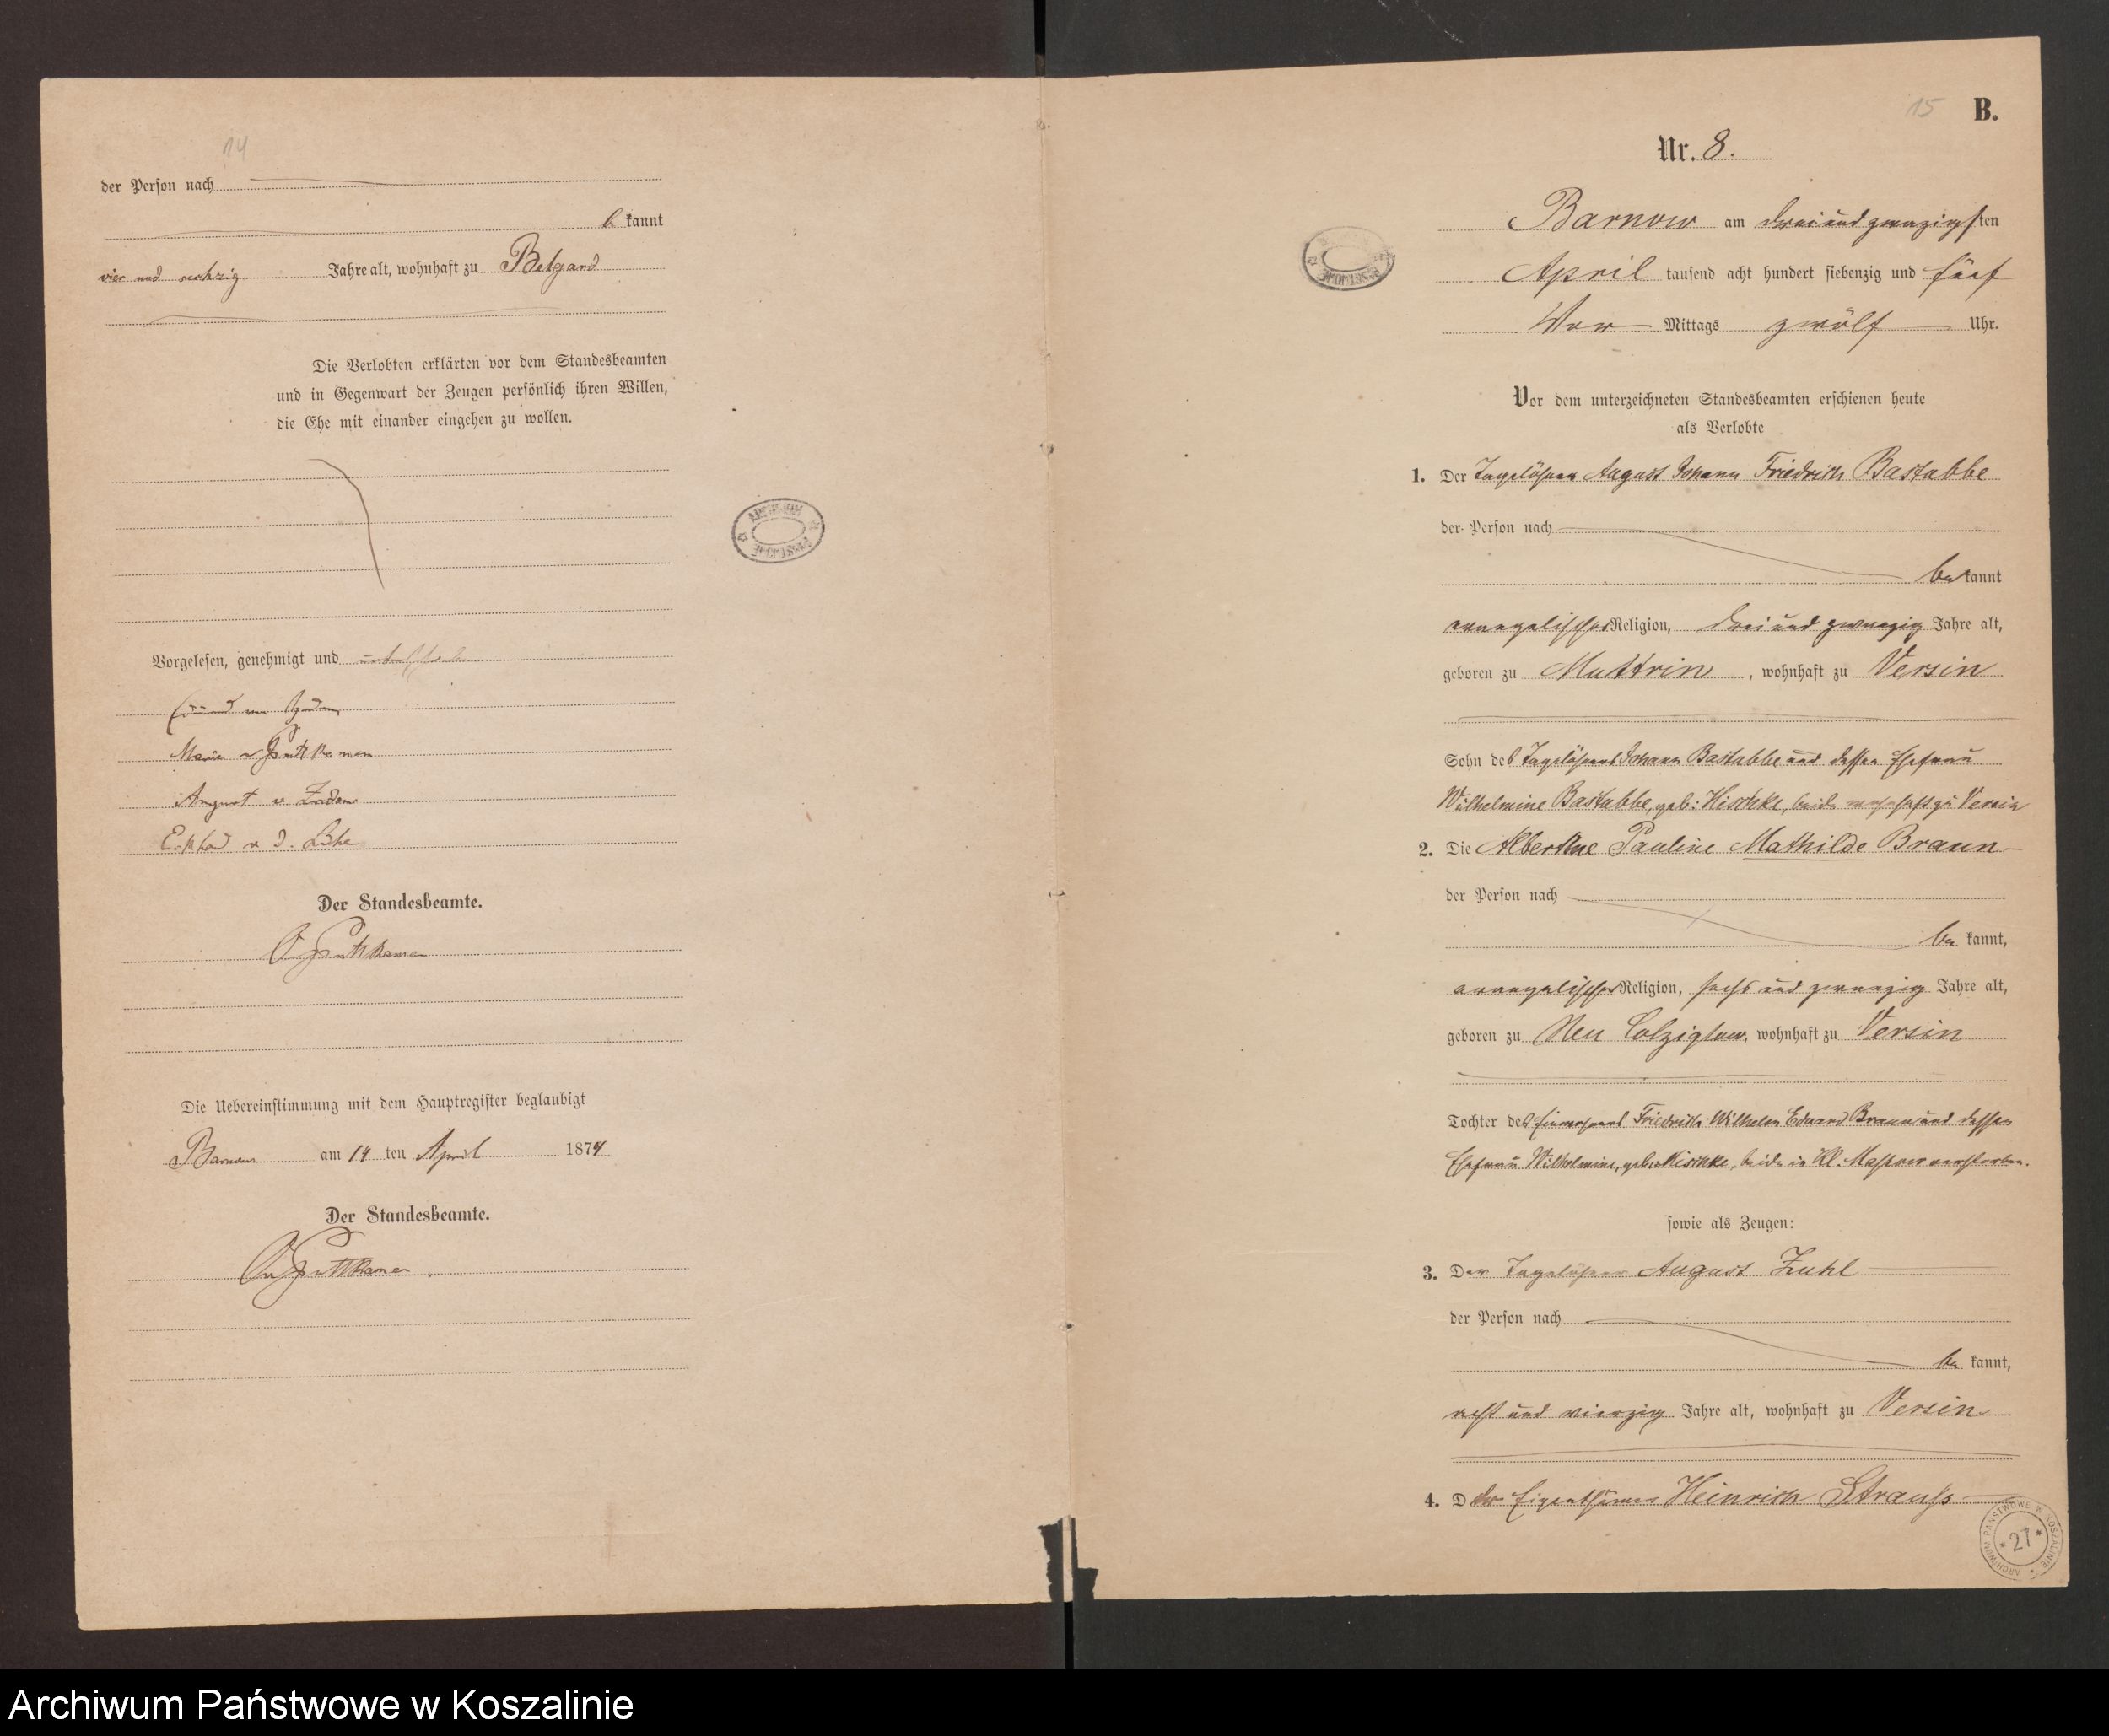 14
der Person nach
be kannt
vier und achzig Jahre alt, wohnhaft zu Belgard
Die Verlobten erklärten vor dem Standesbeamten
und in Gegenwart der Zeugen persönlich ihren Willen,
die Ehe mit einander eingehen zu wollen.
ARCHIWUM PAŃSTWOWE
Vorgelesen, genehmigt und unterschrieben
von
Marie v Puttkamer
August v Zadow
Eckhard v. d. Lühe
Der Standesbeamte.
Puttkamer
Die Uebereinstimmung mit dem Hauptregister beglaubigt
Barnow am 14 ten April 1874
Der Standesbeamte.
Puttkamer
15 B.
Nr. 8.
Barnow am drei und zwanzigsten
April tausend acht hundert siebenzig und fünf
Vor Mittags zwölf Uhr.
Vor dem unterzeichneten Standesbeamten erschienen heute
als Verlobte
1. Der Tagelöhner August Johann Friedrich Bastubbe
der Person nach
be kannt
evangelischer Religion, drei und zwanzig Jahre alt,
geboren zu Muttrin, wohnhaft zu Versin
Sohn des Tagelöhners Johann Bastubbe und dessen Ehefrau
Wilhelmine Bastubbe, geb: Hischke, beide wohnhaft zu Versin
2. Die Albertine Pauline Mathilde Braun
der Person nach
be kannt,
evangelischer Religion, sechs und zwanzig Jahre alt,
geboren zu Neu Colziglow, wohnhaft zu Versin
Tochter des Einwohners Friedrich Wilhelm Eduard Braun und dessen
Ehefrau Wilhelmine, geb: Mischke, beide in Kl. Massow verstorben.
sowie als Zeugen:
3. Der Tagelöhner August Zuhl
der Person nach
be kannt,
acht und vierzig Jahre alt, wohnhaft zu Versin
4. D der Eigenthümer Heinrich Strauss
ARCHIWUM PAŃSTWOWE W KOSZALINIE
* 27 *
Archiwum Państwowe w Koszalinie